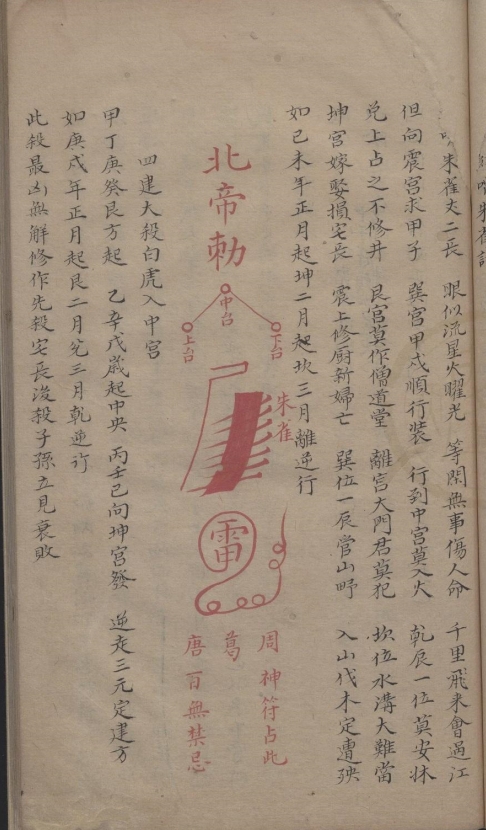 朱雀丈二長 眼似流星火曜光 等閑無事傷人命 千里飛来會過江
但向震宮求甲子 巽宮甲戌順行裝 行到中宮莫入火 乾辰一位莫安牀
兌上占之不修井 艮宮莫作僧道堂 離宮大門君莫犯 坎位水溝大難當
坤宮嫁娶損宅長 震上修厨新婦亡 巽位一辰官山野 入山伐木定遭殃
如己未年正月起坤二月起坎三月離逆行
北帝勅
中台
上台
下台
朱雀
雷
周 神符占此
葛
唐 百無禁忌
四建大殺白虎入中宮
甲丁庚癸艮方起 乙辛戊歲起中央 丙壬己向坤宮發 逆走三元定建方
如庚戌年正月起艮二月兌三月乾逆行
此殺最凶無解修作先殺宅長後殺子孫立見衰敗